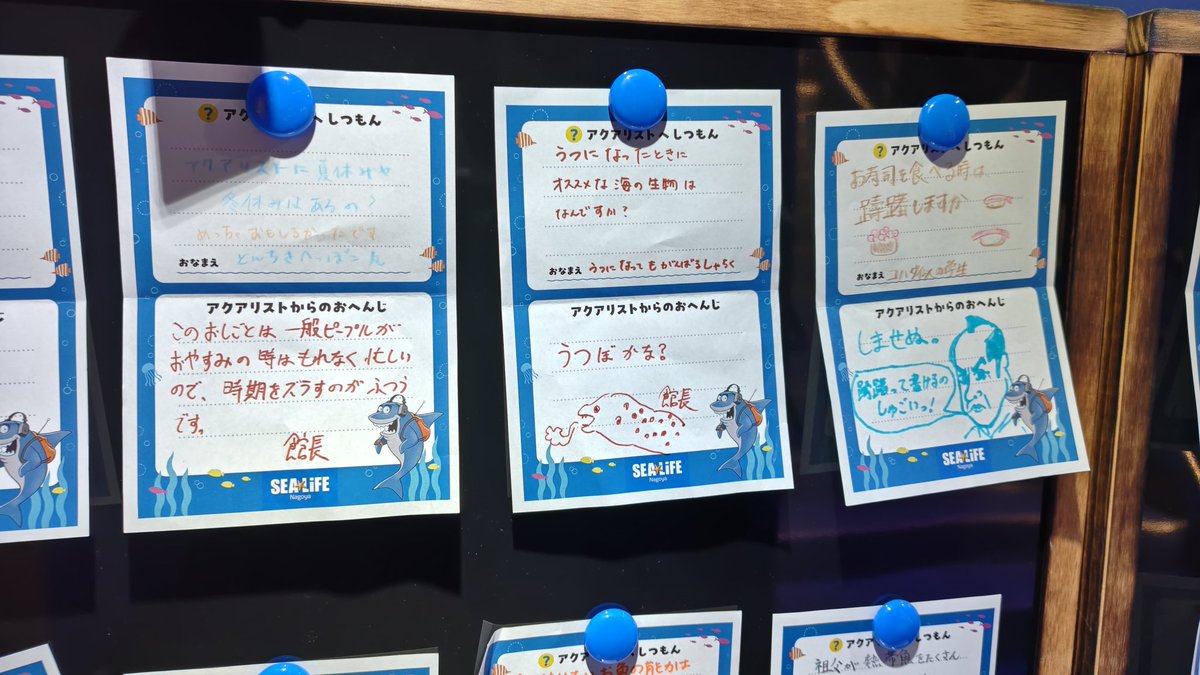 ? アクアリストへ しつもん
アクアリストに夏休みや
冬休みはあるの?
めっちゃおもしろかったです
おなまえ とんちきへっぽこ
アクアリストからのおへんじ
このおしごとは 一般ピープルが
おやすみの時はもれなく忙しい
ので、時期をズラすのがふつう
です。
館長
SEA LiFE
Nagoya
? アクアリストへ しつもん
うつに なったときに
オススメな 海の生物は
なんですか?
おなまえ うつになっても がんばるしゃちく
アクアリストからのおへんじ
うつぼかな?
館長
SEA LiFE
Nagoya
? アクアリストへ しつもん
お寿司を食べる時は、
躊躇しますか
おなまえ
アクアリストからのおへんじ
しませぬ。
躊躇って書けるの
しゅごいっ!
SEA LiFE
Nagoya
? アクアリストへ しつもん
お魚の能力は
? アクアリストへ しつもん
祖父が熱帯魚をたくさん